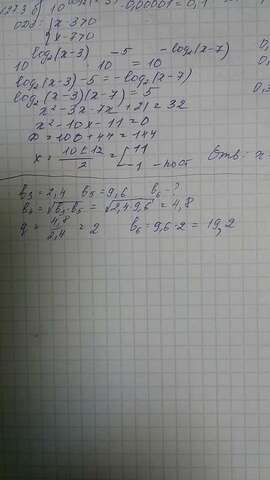 1223 б) 10^log₂(x-3) · 0,00001 = 0,1
ОДЗ: { x-3>0
x-7>0
10^log₂(x-3) -5 = 10^-log₂(x-7)
log₂(x-3)-5 = -log₂(x-7)
log₂(x-3)(x-7) = 5
x² - 3x - 7x + 21 = 32
x² - 10x - 11 = 0
D = 100 + 44 = 144
x = (10±12)/2 = [ 11
-1 - пост Отв: x
b₃ = 2,4 b₅ = 9,6 b₆ - ?
b₄ = √(b₃·b₅) = √(2,4·9,6) = 4,8
q = 4,8/2,4 = 2 b₆ = 9,6·2 = 19,2